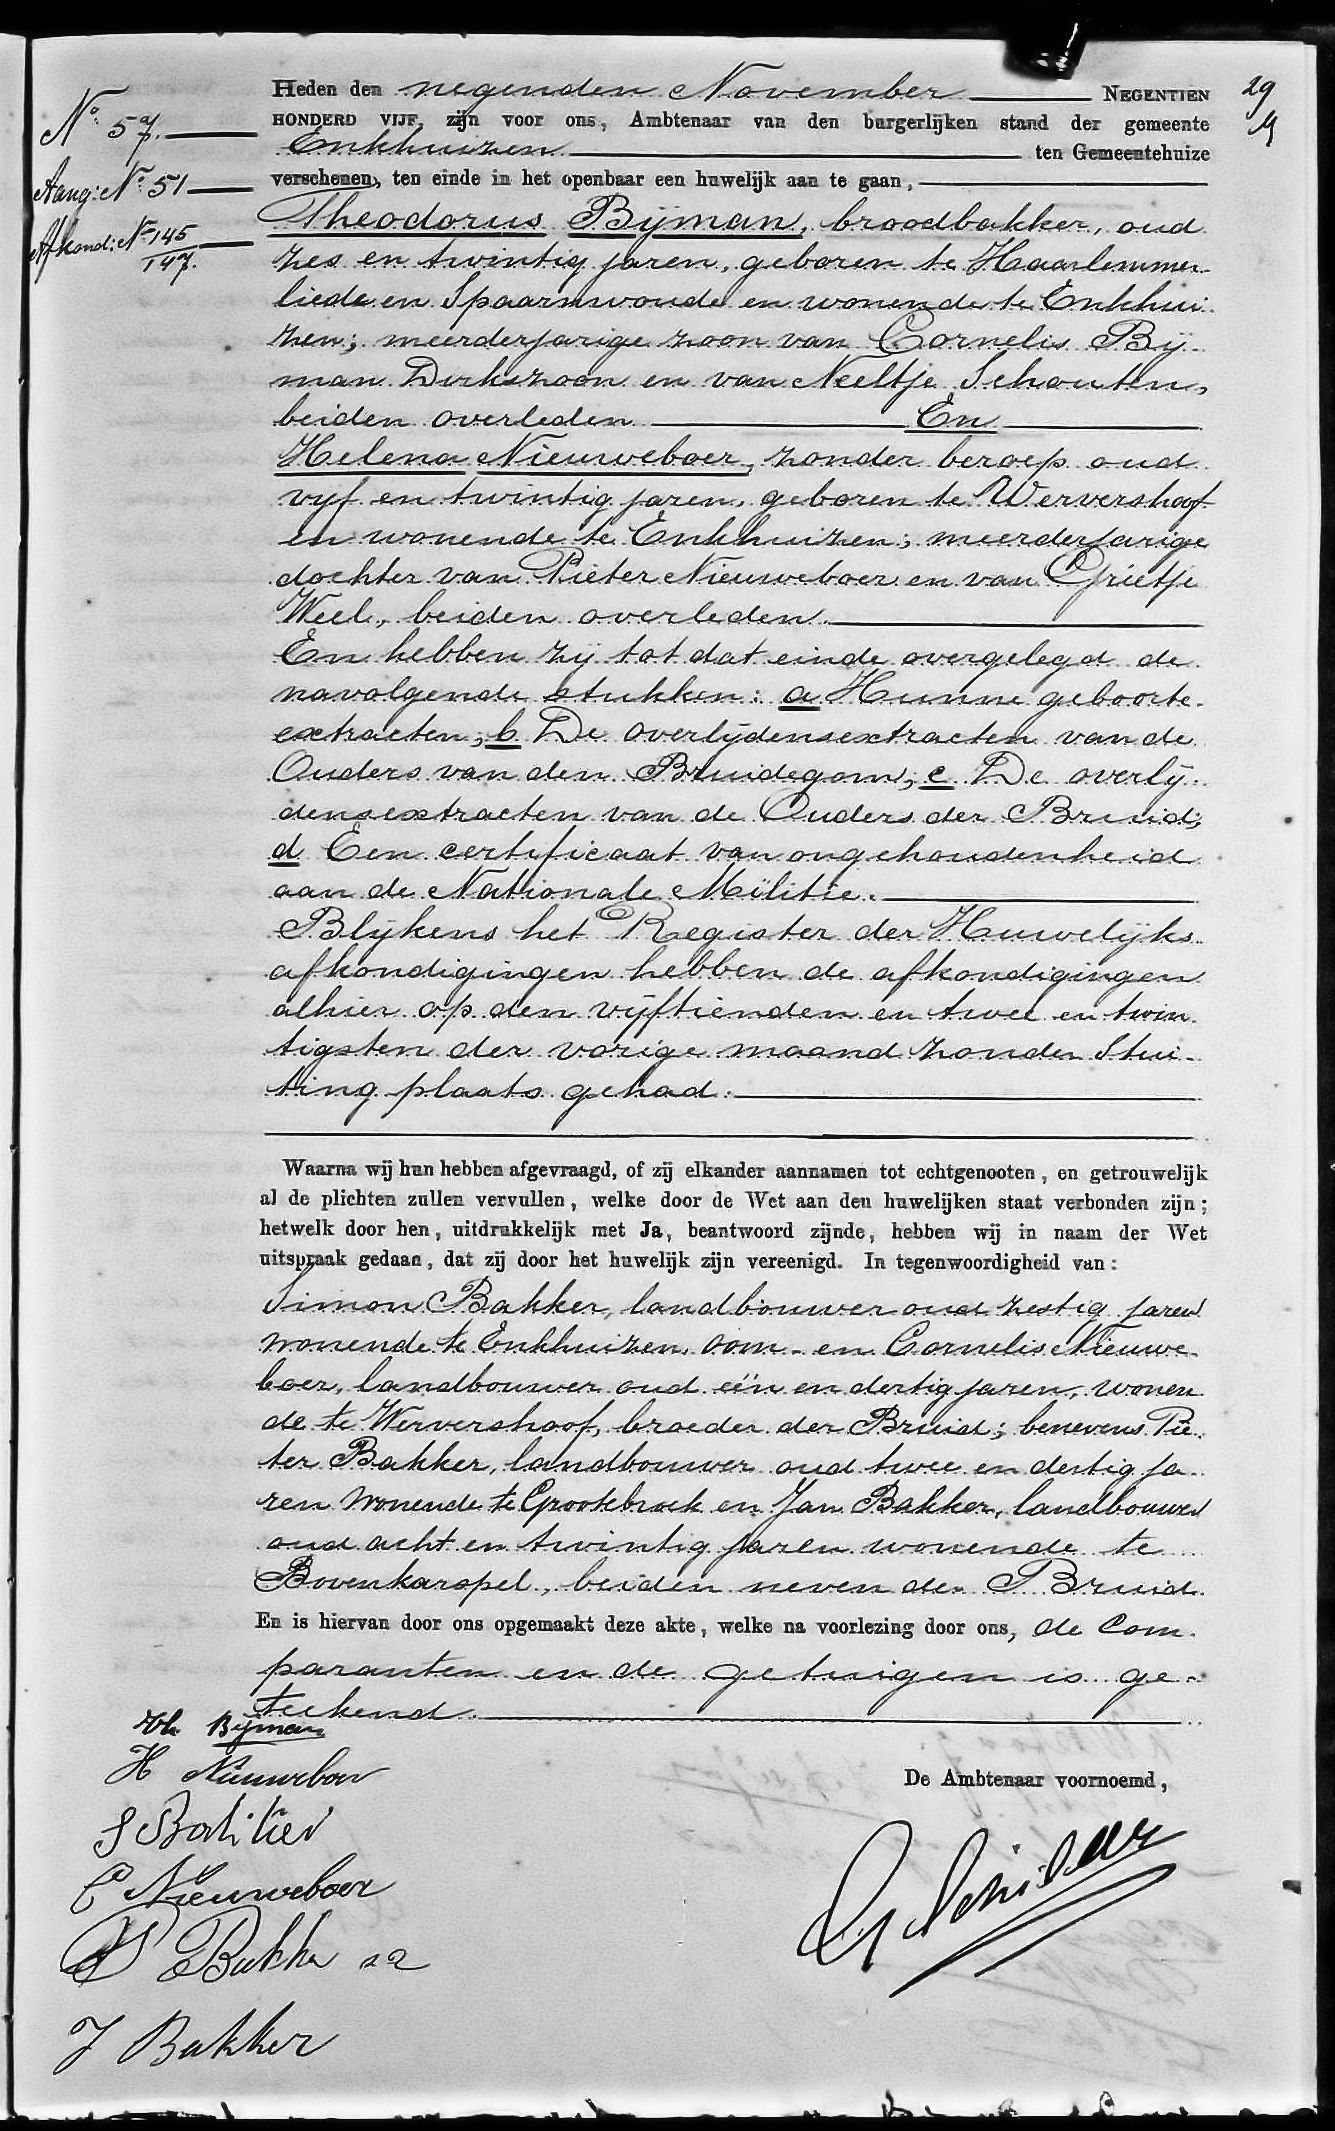 Nº 57.
Aang: Nº 51
Afkond: Nº 145
147.
29
Heden den negenden November NEGENTIEN
HONDERD VIJF, zijn voor ons, Ambtenaar van den burgerlijken stand der gemeente
Enkhuizen ten Gemeentehuize
verschenen, ten einde in het openbaar een huwelijk aan te gaan,
Theodorus Bijman, broodbakker, oud
zes en twintig jaren, geboren te Haarlemmer-
liede en Spaarnwoude en wonende te Enkhui-
zen; meerderjarige zoon van Cornelis Bij-
man Dirkszoon en van Neeltje Schouten,
beiden overleden En
Helena Nieuweboer, zonder beroep oud
vijf en twintig jaren, geboren te Wervershoof
en wonende te Enkhuizen; meerderjarige
dochter van Pieter Nieuweboer en van Grietje
Weel, beiden overleden.
En hebben zij tot dat einde overgelegd de
navolgende stukken: a Hunne geboorte-
extracten; b De overlijdensextracten van de
Ouders van den Bruidegom; c De overlij-
densextracten van de Ouders der Bruid;
d Een certificaat van ongehoudenheid
aan de Nationale Militie.
Blijkens het Register der Huwelijks-
afkondigingen hebben de afkondigingen
alhier op den vijftienden en twee en twin-
tigsten der vorige maand zonder Stui-
ting plaats gehad.
Waarna wij hun hebben afgevraagd, of zij elkander aannamen tot echtgenooten, en getrouwelijk
al de plichten zullen vervullen, welke door de Wet aan den huwelijken staat verbonden zijn;
hetwelk door hen, uitdrukkelijk met Ja, beantwoord zijnde, hebben wij in naam der Wet
uitspraak gedaan, dat zij door het huwelijk zijn vereenigd. In tegenwoordigheid van:
Simon Bakker, landbouwer oud zestig jaren
wonende te Enkhuizen, oom- en Cornelis Nieuwe-
boer, landbouwer oud één en dertig jaren, wonen-
de te Wervershoof, broeder der Bruid; benevens Pie-
ter Bakker, landbouwer oud twee en dertig ja-
ren wonende te Grootebroek en Jan Bakker, landbouwer
oud acht en twintig jaren wonende te
Bovenkarspel, beiden neven der Bruid.
En is hiervan door ons opgemaakt deze akte, welke na voorlezing door ons, de Com-
paranten en de getuigen is ge-
teekend.
Th Bijman
H Nieuweboer
S Bakker
C Nieuweboer
P Bakker
J Bakker
De Ambtenaar voornoemd,